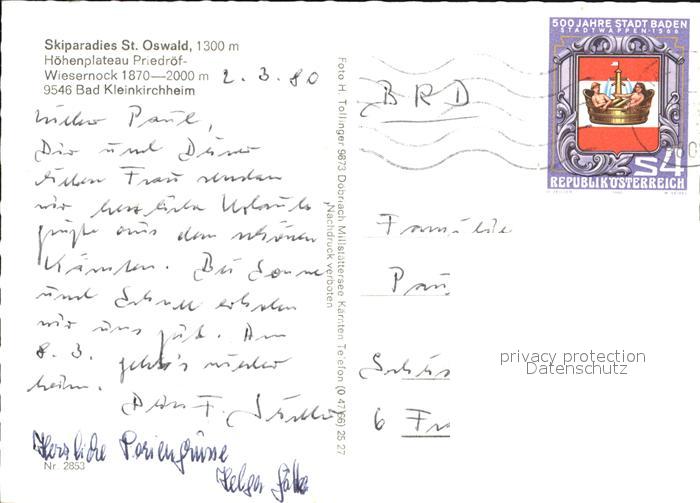 Skiparadies St. Oswald, 1300 m
Höhenplateau Priedröf-
Wiesernock 1870—2000 m
9546 Bad Kleinkirchheim
2. 3. 80
Lieber Paul,
Dir und Deiner
lieben Frau senden
wir herzliche Urlaubs
grüße aus dem schönen
Kärnten. Bei Sonne
und Schnee erholen
wir uns gut. Am
8. 3. geht's wieder
heim.
Dein F.
Herzliche Feriengrüsse
Helga
Nr. 2853
Foto H. Tollinger 9873 Döbriach Millstättersee Kärnten Telefon (0 47 66) 25 27
Nachdruck verboten
BRD
500 JAHRE STADT BADEN
STADTWAPPEN·1566
S4
REPUBLIK ÖSTERREICH
Familie
Pau
6 Fr
privacy protection
Datenschutz